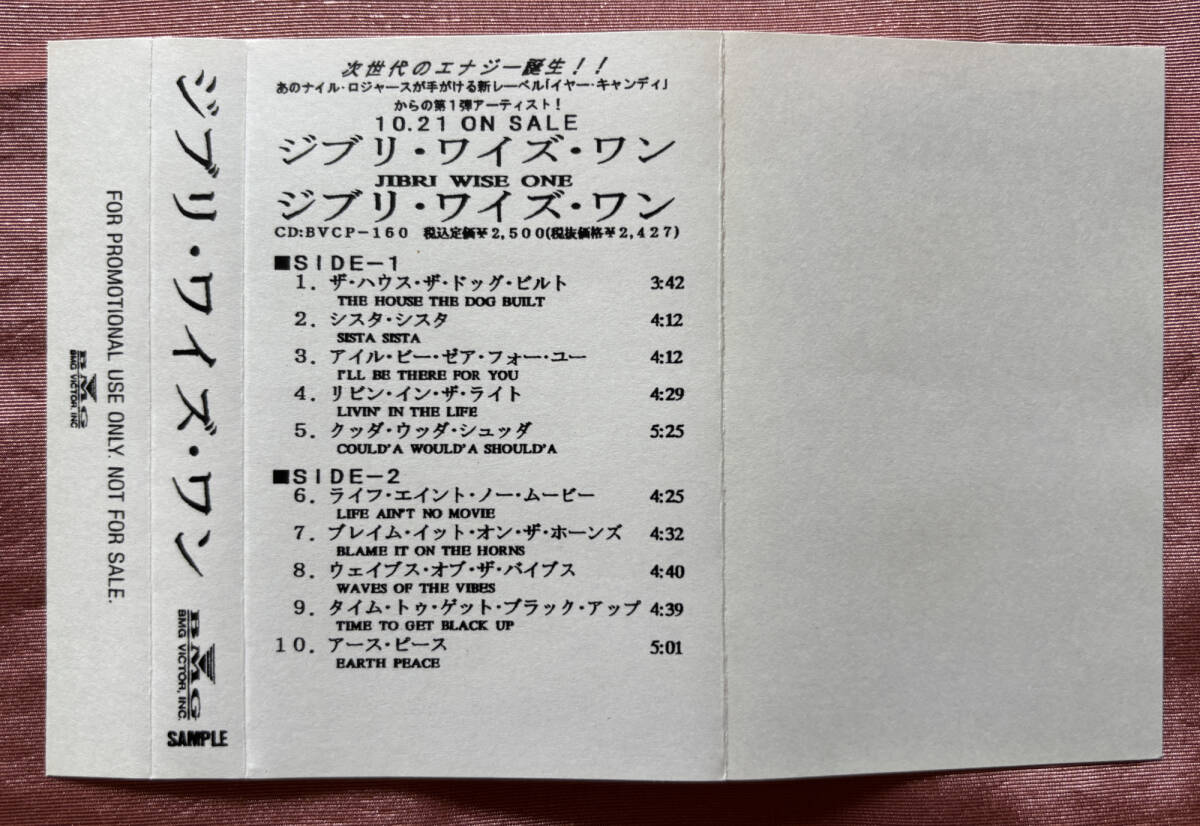 FOR PROMOTIONAL USE ONLY. NOT FOR SALE.
BMG
BMG VICTOR, INC
ジブリ・ワイズ・ワン
BMG
BMG VICTOR, INC
SAMPLE
次世代のエナジー誕生!!
あのナイル・ロジャースが手がける新レーベル「イヤー・キャンディ」
からの第1弾アーティスト!
10.21 ON SALE
ジブリ・ワイズ・ワン
JIBRI WISE ONE
ジブリ・ワイズ・ワン
CD:BVCP-160 税込定価¥2,500(税抜価格¥2,427)
■SIDE-1
1. ザ・ハウス・ザ・ドッグ・ビルト 3:42
THE HOUSE THE DOG BUILT
2. シスタ・シスタ 4:12
SISTA SISTA
3. アイル・ビー・ゼア・フォー・ユー 4:12
I'LL BE THERE FOR YOU
4. リビン・イン・ザ・ライト 4:29
LIVIN' IN THE LIFE
5. クッダ・ウッダ・シュッダ 5:25
COULD'A WOULD'A SHOULD'A
■SIDE-2
6. ライフ・エイント・ノー・ムービー 4:25
LIFE AIN'T NO MOVIE
7. ブレイム・イット・オン・ザ・ホーンズ 4:32
BLAME IT ON THE HORNS
8. ウェイブス・オブ・ザ・バイブス 4:40
WAVES OF THE VIBES
9. タイム・トゥ・ゲット・ブラック・アップ 4:39
TIME TO GET BLACK UP
10. アース・ピース 5:01
EARTH PEACE